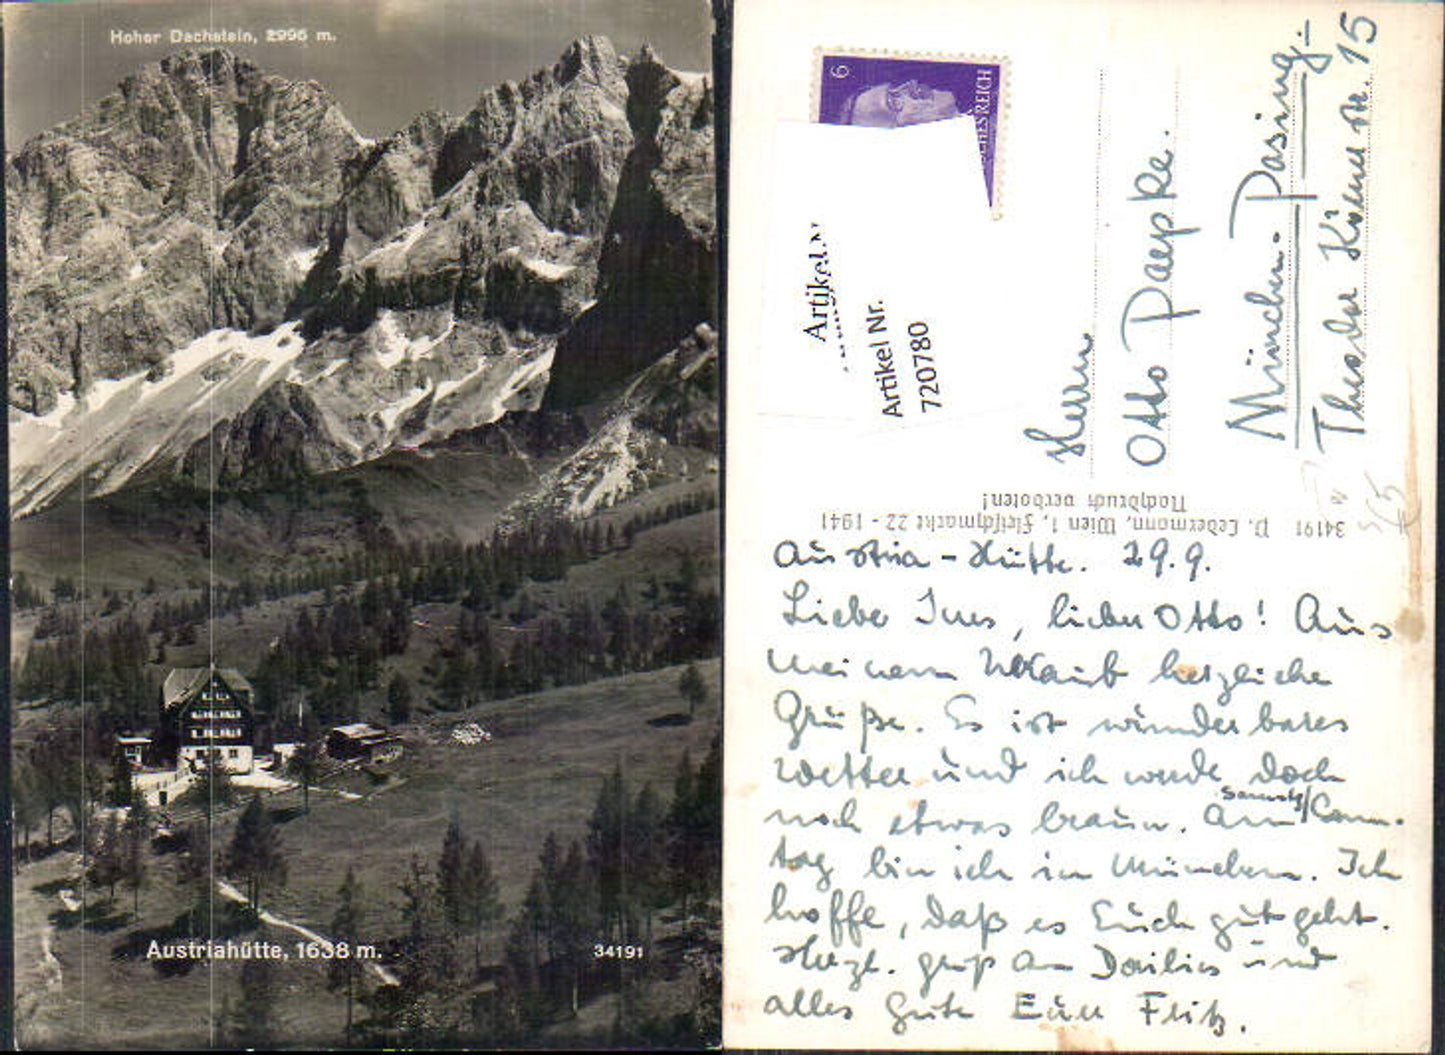 Hoher Dachstein, 2996 m.
Austriahütte, 1638 m.
34191
6
SCHES REICH
Artikel N
Artikel Nr.
720780
Herrn
Otto Paepke.
München-Pasing-
Theodor Körner str. 15
34191 P. Ledermann, Wien 1, Fleischmarkt 22 - 1941
Nachdruck verboten!
Austria-Hütte. 29.9.
Liebe Ines, lieber Otto! Aus
meinem Urlaub herzliche
Grüße. Es ist wunderbares
Wetter und ich werde doch
noch etwas braun. Am
tag bin ich in München. Ich
hoffe, daß es Euch gut geht.
Herzl. Gruß an und
alles Gute Euer Fritz.